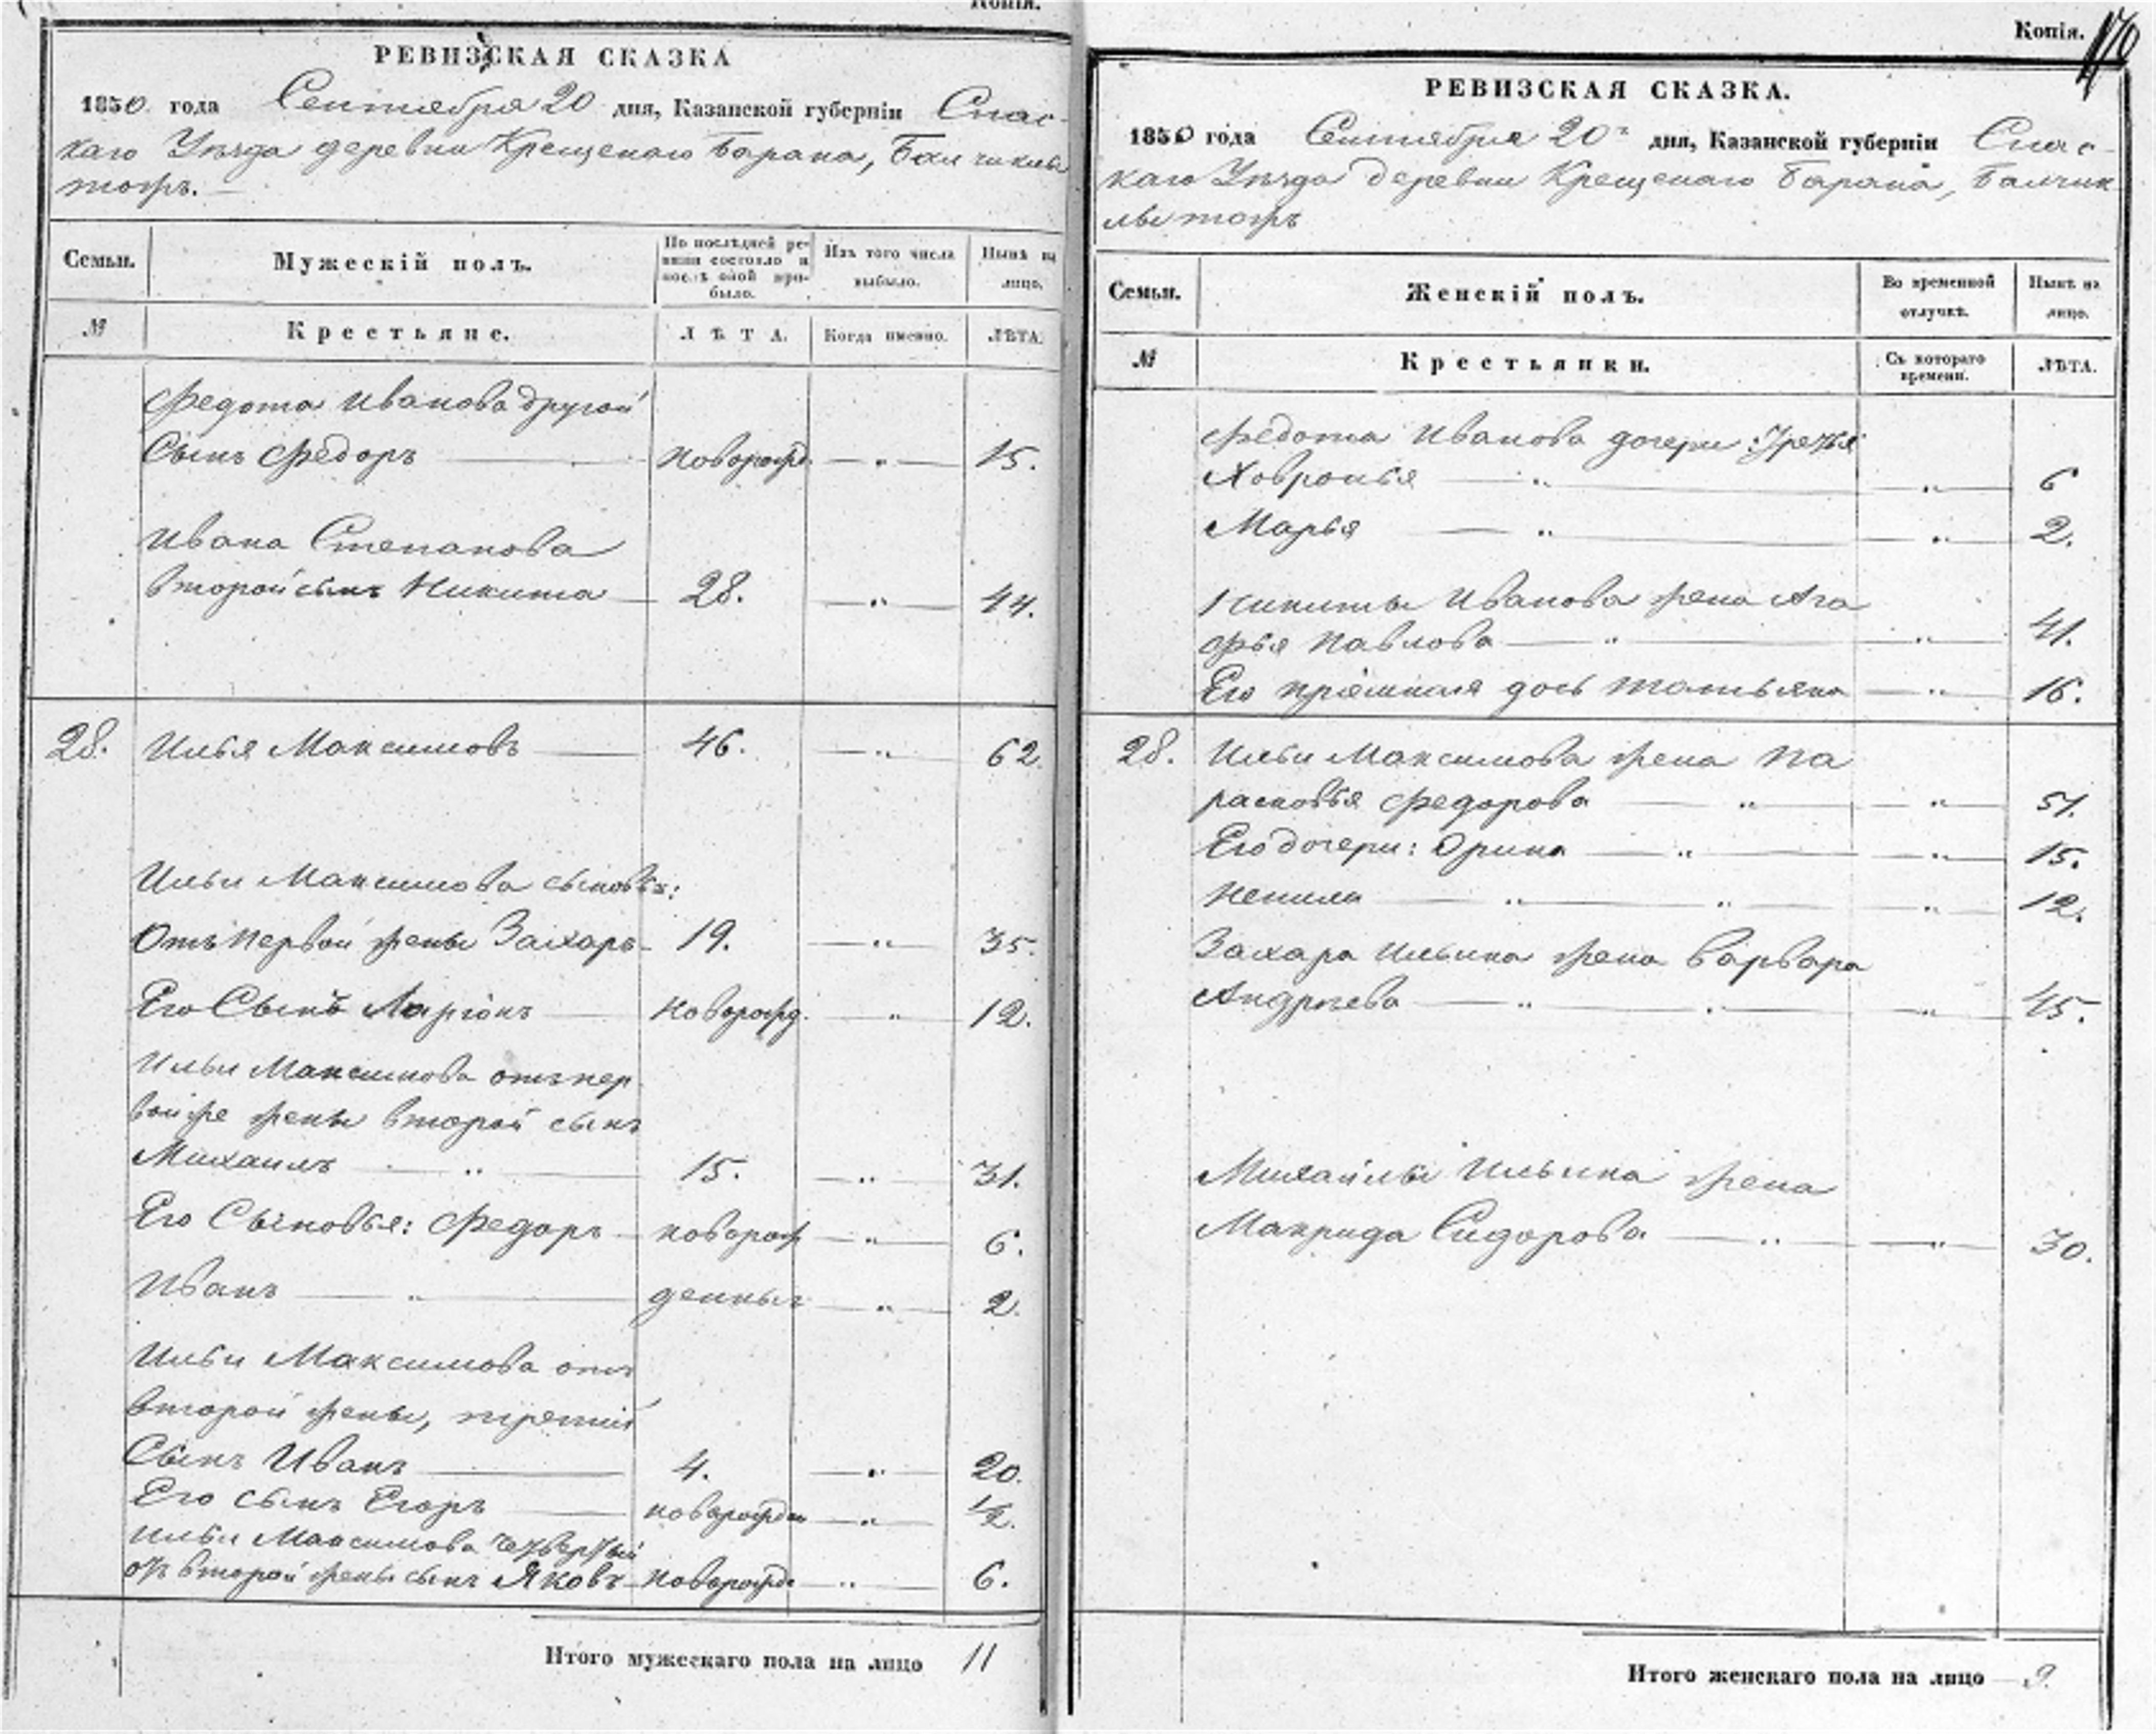 Копія.
РЕВИЗСКАЯ СКАЗКА
1850 года Сентября 20 дня, Казанской губерніи Спас-
каго Уѣзда деревни Крещенаго Барана, Балчиклы
тожъ.
Семьи. Мужескій полъ. По послѣдней ревизіи состояло и послѣ оной прибыло. Изъ того числа выбыло. Нынѣ на лицо.
№ Крестьяне. ЛѢТА. Когда именно. ЛѢТА.
Федота Иванова другой
Сынъ Федоръ новорожд. — „ — 15.
Ивана Степанова
второй сынъ Никита 28. — „ — 44.
28. Илья Максимовъ 46. — „ — 62.
Ильи Максимова сыновья:
Отъ первой жены Захаръ 19. — „ — 35.
Его Сынъ Ларіонъ новорожд. — „ — 12.
Ильи Максимова отъ пер
вой же жены второй сынъ
Михаилъ — „ — 15. — „ — 31.
Его Сыновья: Федоръ новорож — „ — 6.
Иванъ — „ — денные — „ — 2.
Ильи Максимова отъ
второй жены, третій
Сынъ Иванъ 4. — „ — 20.
Его сынъ Егоръ новорожден — „ — 1/2.
Ильи Максимова четвертый
отъ второй жены сынъ Яковъ новорожд — „ — 6.
Итого мужескаго пола на лицо 11
Копія. 170
РЕВИЗСКАЯ СКАЗКА.
1850 года Сентября 20 дня, Казанской губерніи Спас-
каго Уѣзда деревни Крещенаго Барана, Балчик
лы тожъ
Семьи. Женскій полъ. Во временной отлучкѣ. Нынѣ на лицо.
№ Крестьянки. Съ котораго времени. ЛѢТА.
Федота Иванова дочери: Третья
Ховронья — „ — „ — 6
Марья — „ — „ — 2.
Никиты Иванова жена Ага
фья Павлова — „ — „ — 41.
Его пріемная дочь Татьяна — „ — 16.
28. Ильи Максимова жена Па
расковья Федорова — „ — „ — 51.
Его дочери: Орина — „ — „ — 15.
Ненила — „ — „ — „ — 12.
Захара Ильина жена Варвара
Андреева — „ — „ — „ — 45.
Михайлы Ильина жена
Макрида Сидорова — „ — „ — 30.
Итого женскаго пола на лицо 9.